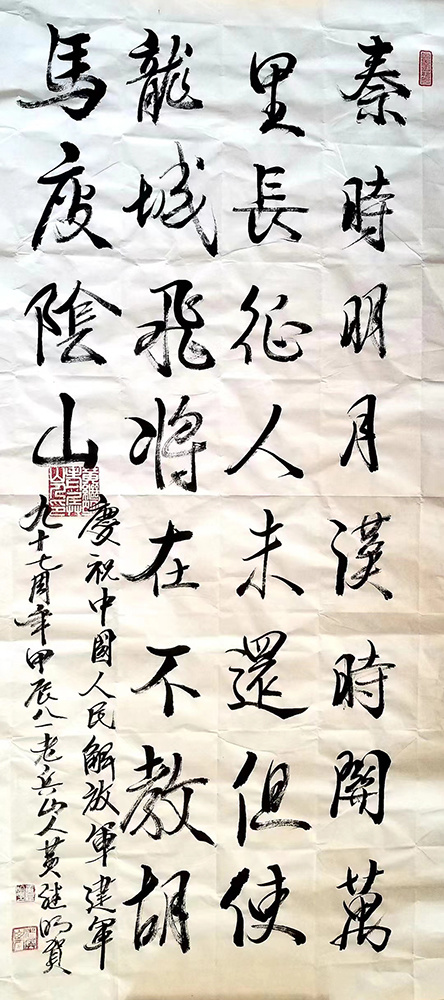 秦時明月漢時關萬
里長征人未還但使
龍城飛將在不教胡
馬度陰山
慶祝中國人民解放軍建軍
九十七周年甲辰八一老兵山人黃继明賀